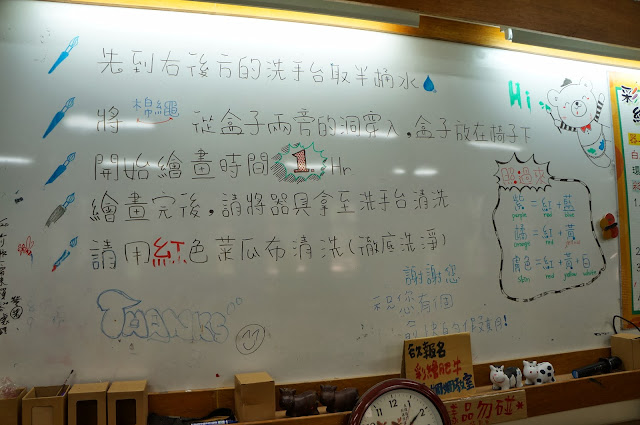 先到右後方的洗手台取半桶水
將棉繩從盒子兩旁的洞穿入,盒子放在椅子下
開始繪畫時間1.Hr
繪畫完後,請將器具拿至洗手台清洗
請用紅色菜瓜布清洗(徹底洗淨)
謝謝您
祝您有個
THANKS
Hi
紫=紅+藍
purple red blue
橘=紅+黃
orange red yellow
膚色=紅+黃+白
skin red yellow white
欲報名
品勿碰
彩